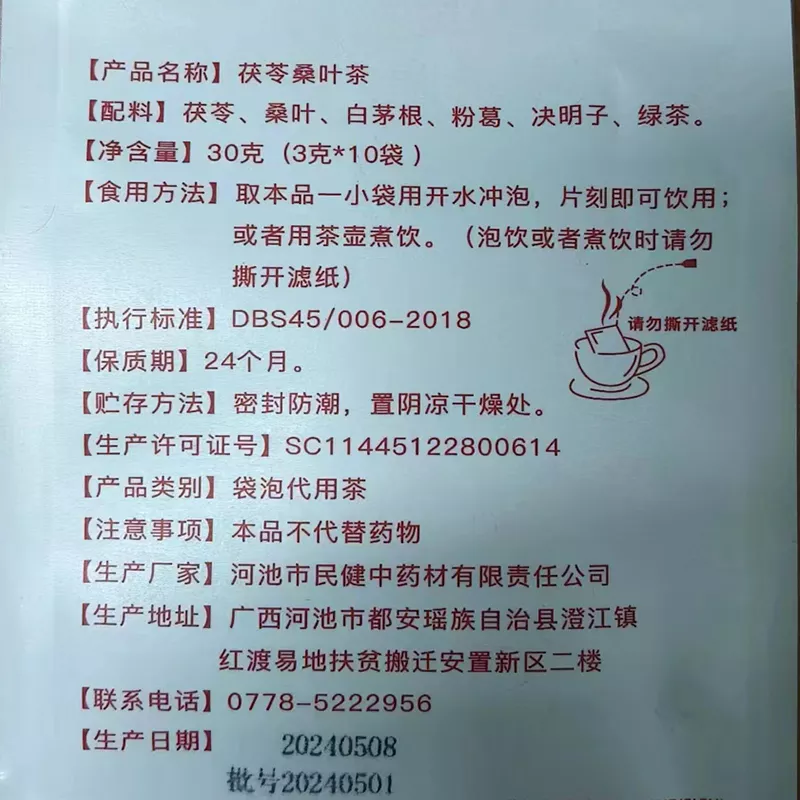 【产品名称】茯苓桑叶茶
【配料】茯苓、桑叶、白茅根、粉葛、决明子、绿茶。
【净含量】30克（3克*10袋）
【食用方法】取本品一小袋用开水冲泡，片刻即可饮用；
或者用茶壶煮饮。（泡饮或者煮饮时请勿
撕开滤纸）
请勿撕开滤纸
【执行标准】DBS45/006-2018
【保质期】24个月。
【贮存方法】密封防潮，置阴凉干燥处。
【生产许可证号】SC11445122800614
【产品类别】袋泡代用茶
【注意事项】本品不代替药物
【生产厂家】河池市民健中药材有限责任公司
【生产地址】广西河池市都安瑶族自治县澄江镇
红渡易地扶贫搬迁安置新区二楼
【联系电话】0778-5222956
【生产日期】 20240508
批号20240501